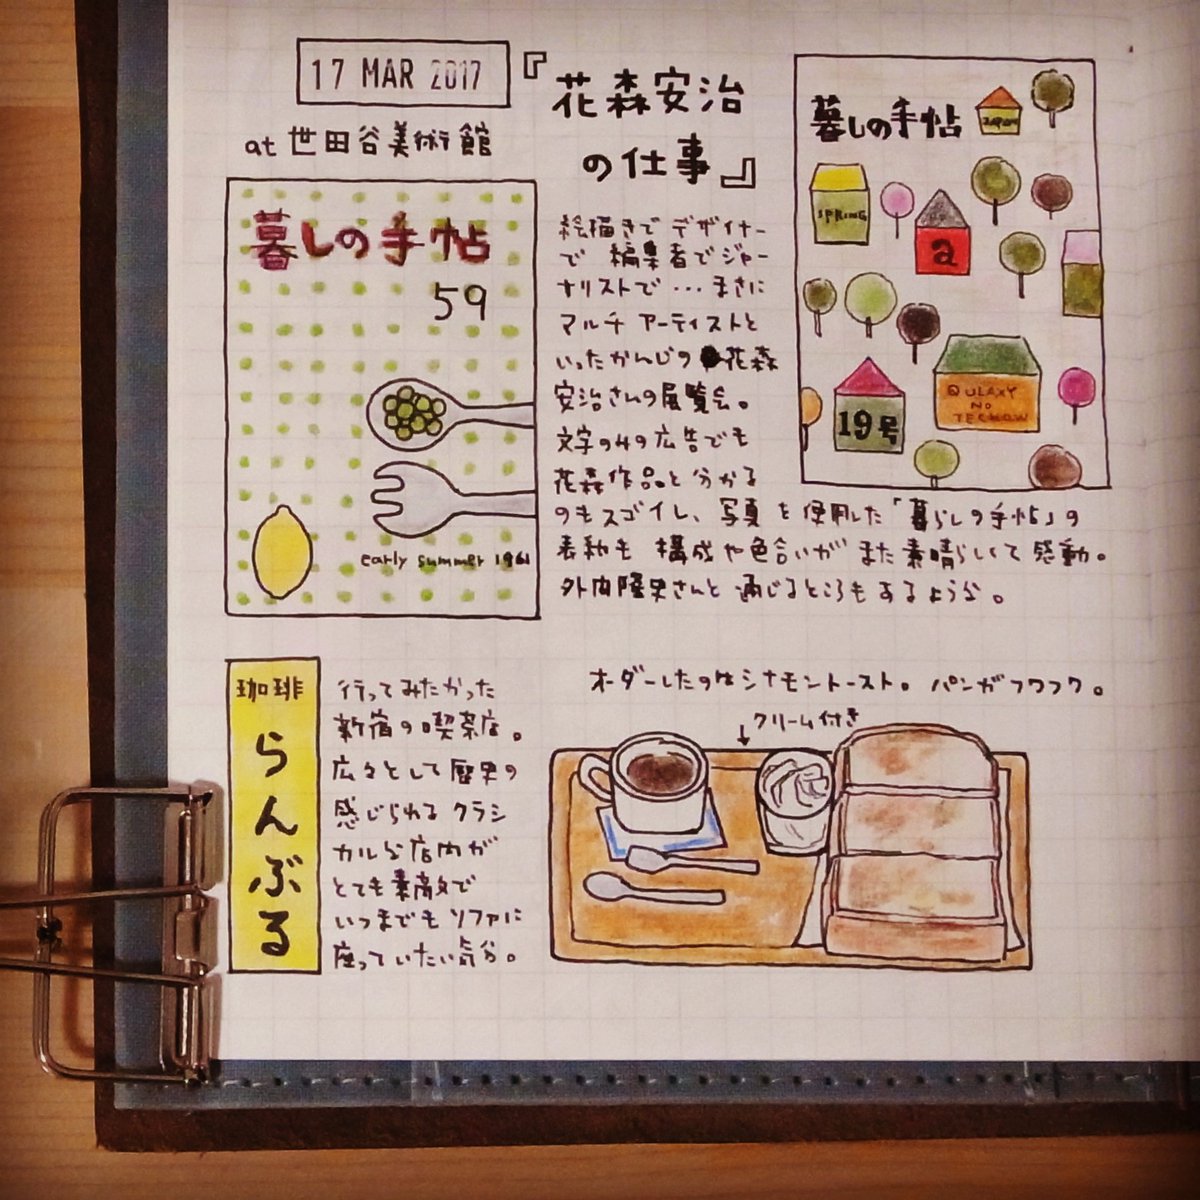 17 MAR 2017
at 世田谷美術館
『花森安治
の仕事』
暮しの手帖
59
early summer 1961
暮しの手帖
JAPAN
SPRING
a
19号
QULAXY
NO
TECHOW
絵描きで デザイナー
で 編集者でジャー
ナリストで…まさに
マルチ アーティストと
いったかんじの 花森
安治さんの展覧会。
文字のみの広告でも
花森作品と分かる
のもスゴイし、写真を使用した「暮らしの手帖」の
表紙も 構成や色合いが また素晴らしくて感動。
外内隆史さんと 通じるところもあるような。
珈琲
らんぶる
行ってみたかった
新宿の喫茶店。
広々として歴史の
感じられる クラシ
カルな店内が
とても素敵で
いつまでも ソファに
座っていたい気分。
オーダーしたのはシナモントースト。パンがフワフワ。
クリーム付き